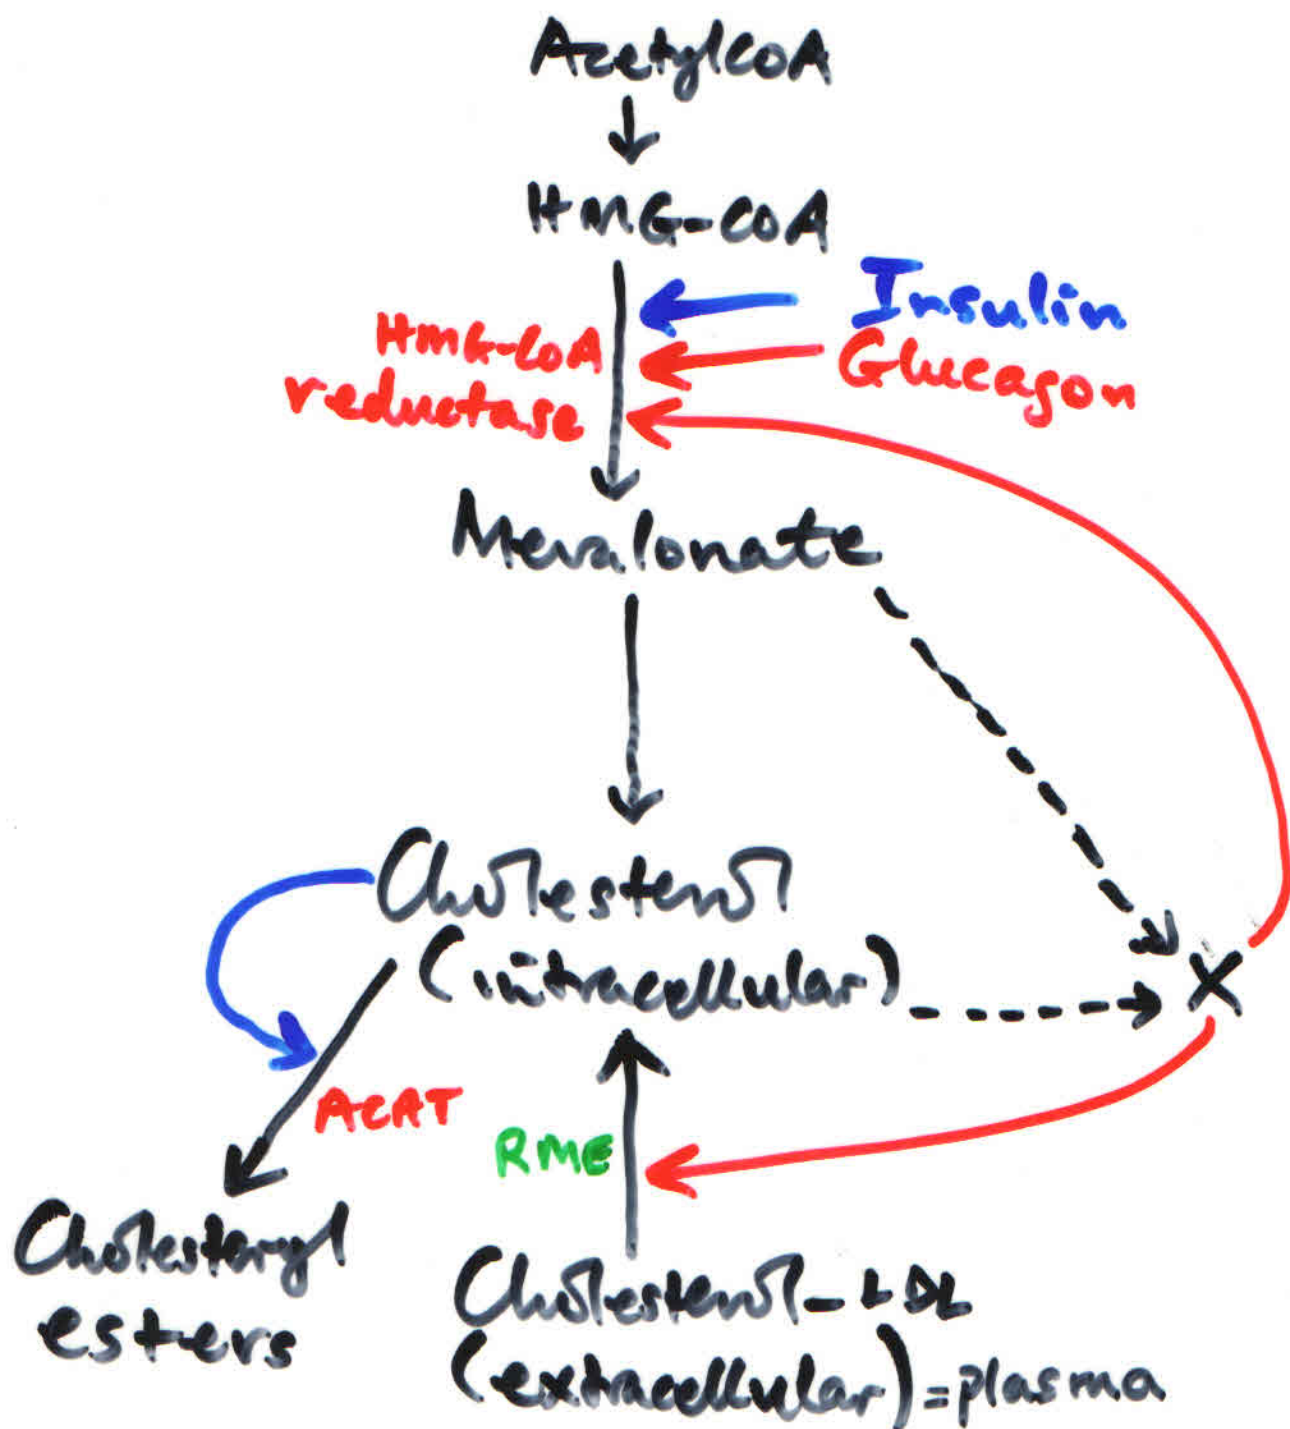 AcetylCoA
HMG-CoA
Insulin
HMG-CoA
Glucagon
reductase
Mevalonate
Cholesterol
(intracellular)
X
ACAT
RME
Cholesteryl
esters
Cholesterol-LDL
(extracellular)=plasma